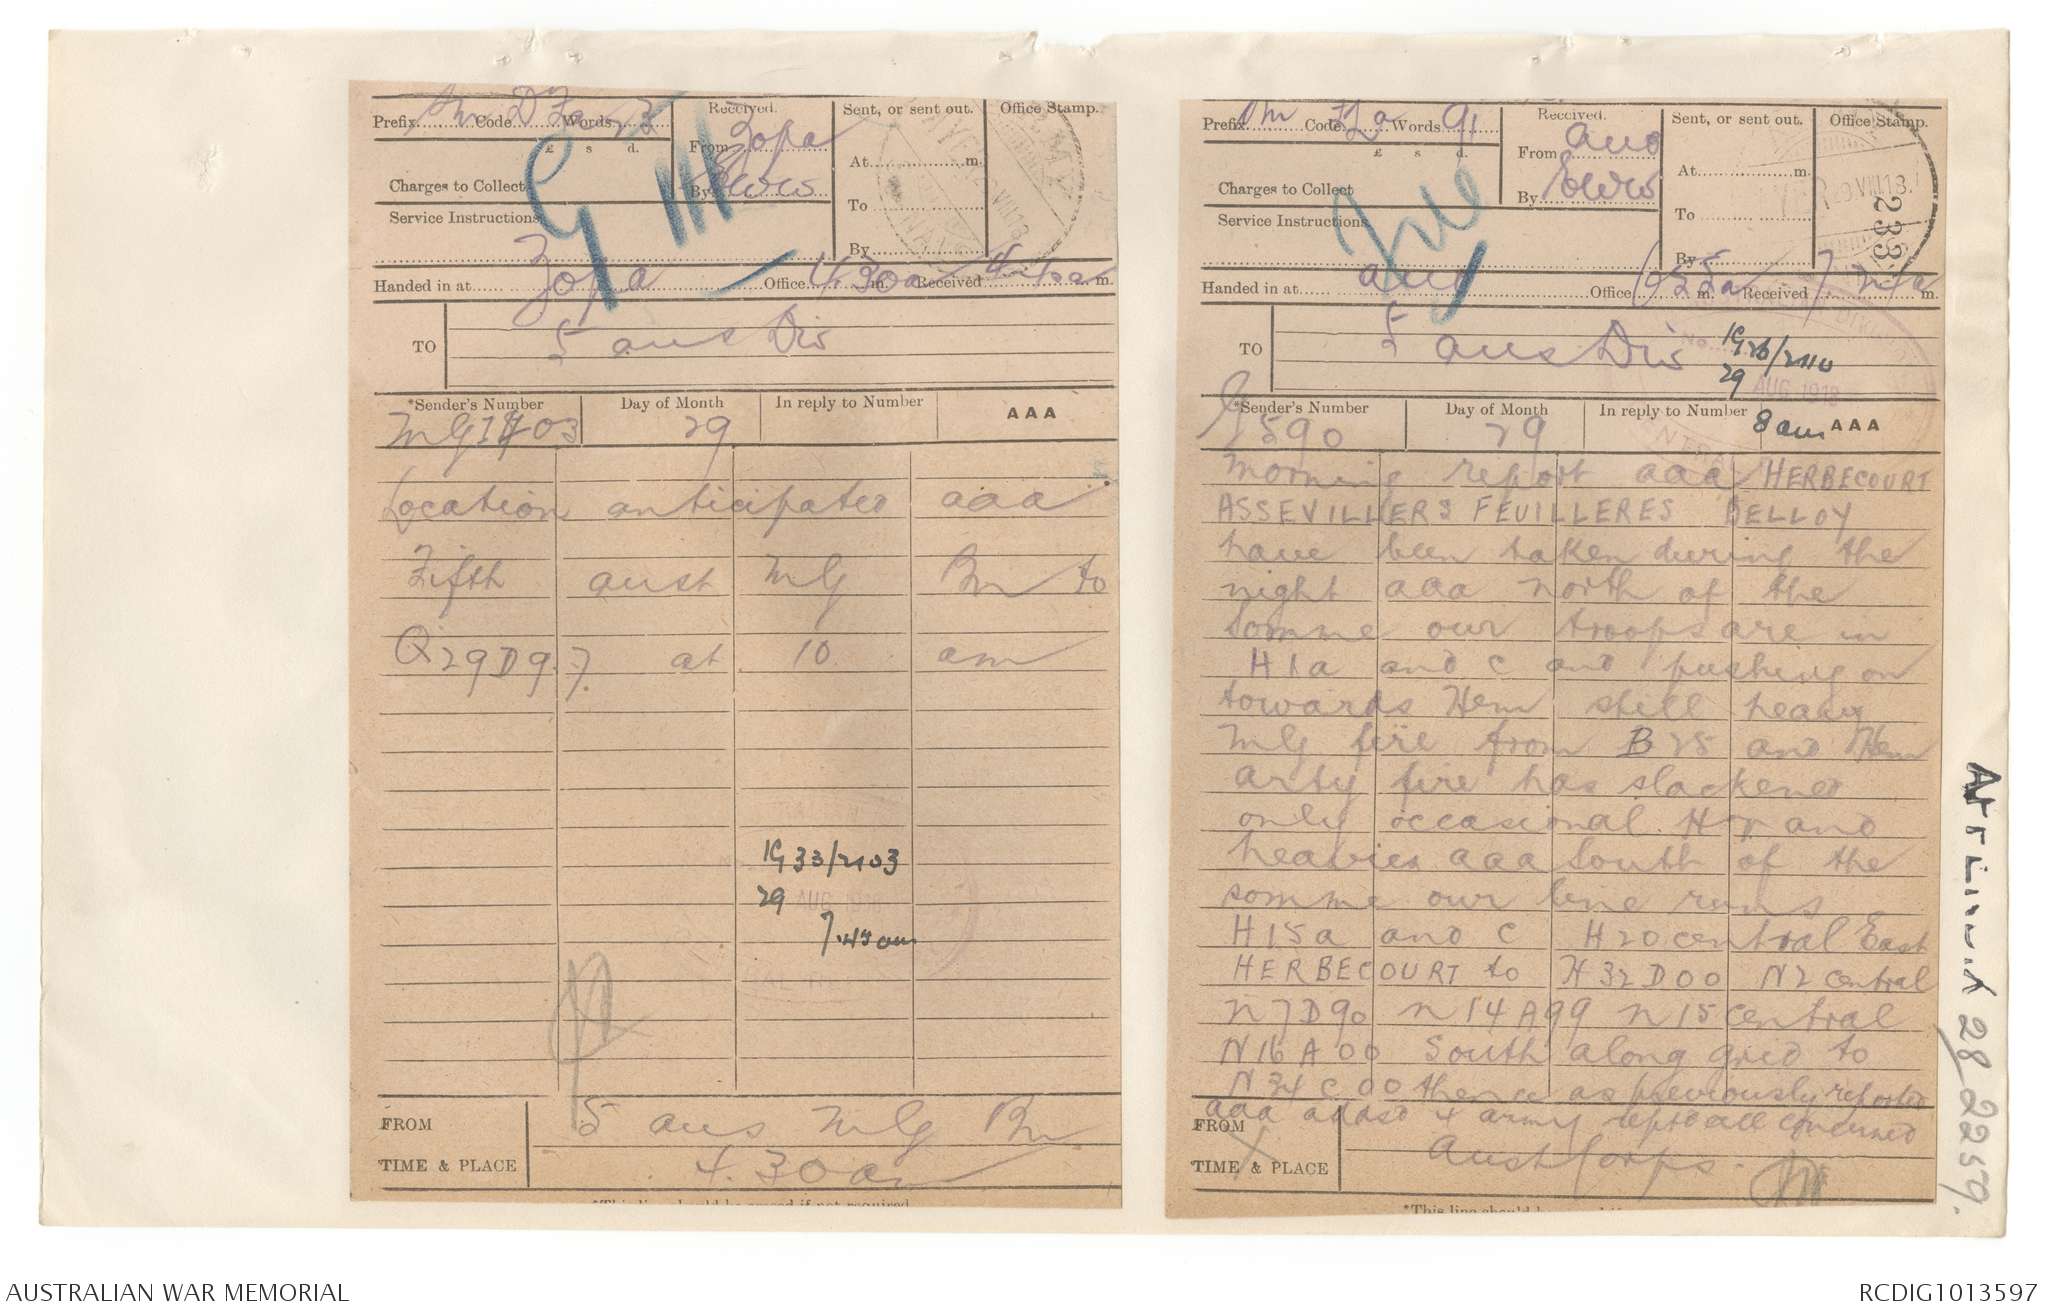 Prefix Sm Code DFa Words 23
Received.
From Zopa
By
Sent, or sent out.
At m.
To
By
Office Stamp.
£ s d.
Charges to Collect
Service Instructions
G III
Zopa
Handed in at Office 4.30a m. Received m.
TO 5 aus Div
*Sender's Number Day of Month In reply to Number AAA
29
Location anticipated aaa
Fifth aust MG Bn to
Q29D9.7. at 10 am
G 33/2103
29 AUG 1918
7.45 am
FROM 5 aus MG Bn
TIME & PLACE 4.30am
Prefix Sm Code Words 91
Received.
From auo
By
Sent, or sent out.
At m.
To
By
Office Stamp.
29.VIII.18.
233
£ s d.
Charges to Collect
Service Instructions
File
Handed in at auo Office m. Received m.
TO 5 aus Div
G26/2110
29 AUG 1918
*Sender's Number Day of Month In reply to Number 8 am AAA
G590 29
Morning report aaa HERBECOURT
ASSEVILLERS FEUILLERES BELLOY
have been taken during the
night aaa north of the
Somme our troops are in
H1a and c and pushing on
towards Hem still heavy
MG fire from B25 and Hem
arty fire has slackened
only occasional and
heavies aaa South of the
somme our line runs
H15a and c H20 central East
HERBECOURT to H32D00 N2 central
N7D90 N14A99 N15 central
N16A00 South along grid to
N34C00 thence as previously reported
aaa addsd 4 army reptd all concerned
FROM Aust Corps.
TIME & PLACE
*This line should be
28 2259.
AUSTRALIAN WAR MEMORIAL
RCDIG1013597